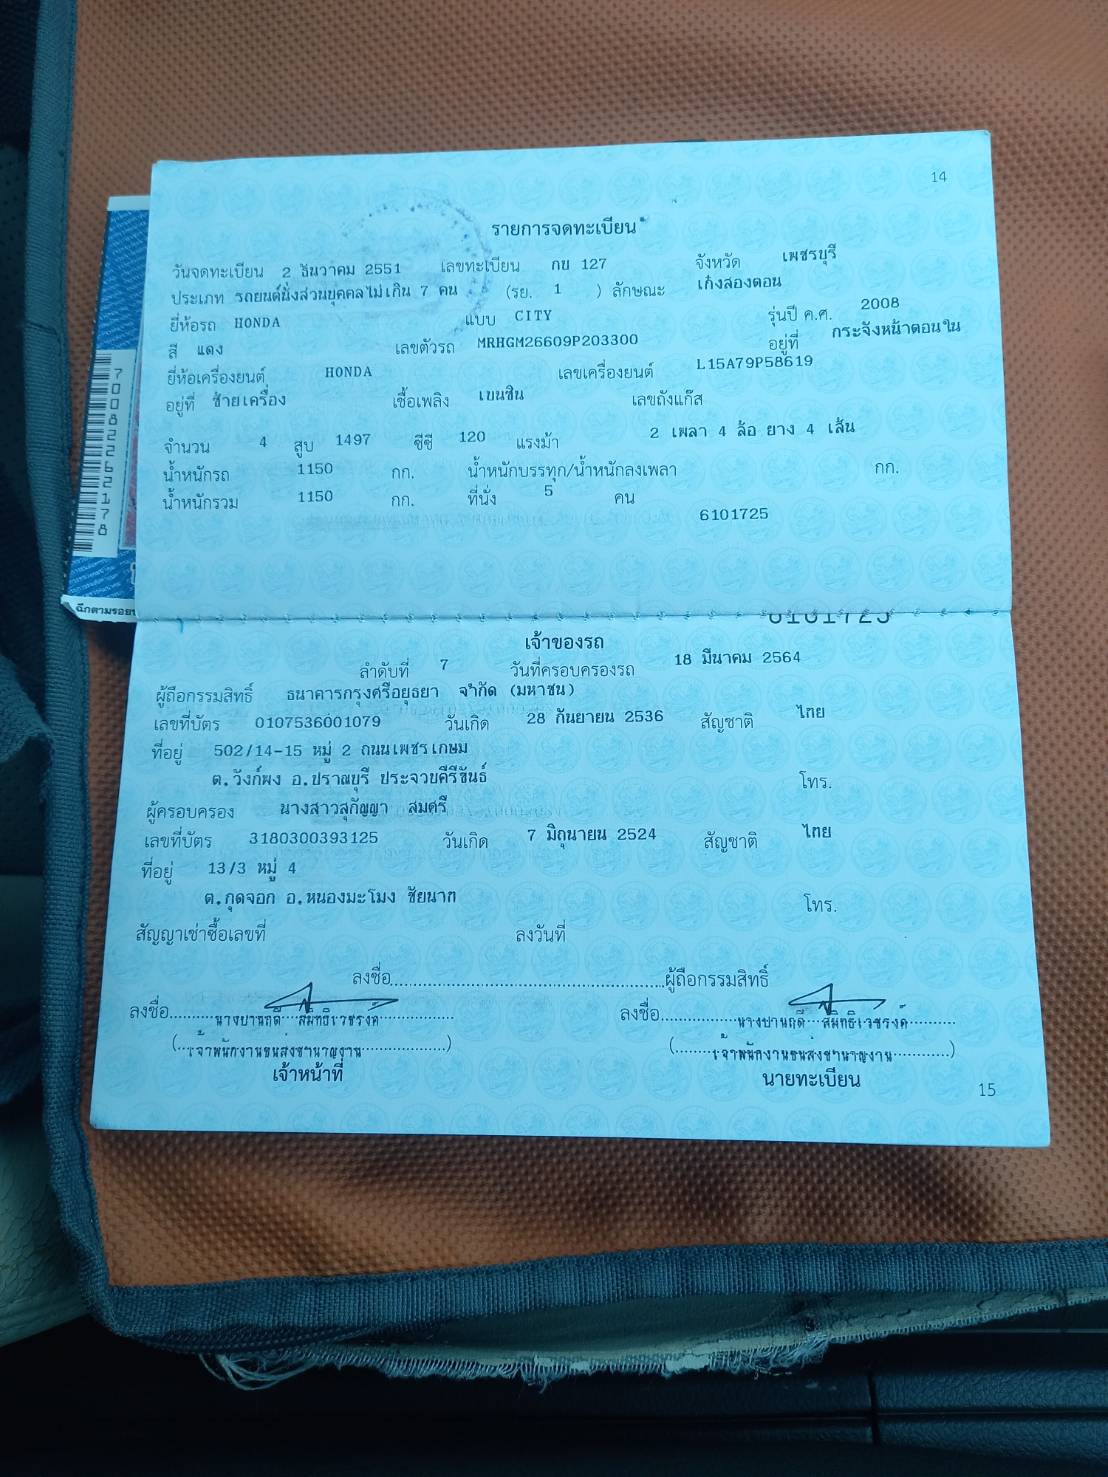 14
รายการจดทะเบียน
วันจดทะเบียน 2 ธันวาคม 2551 เลขทะเบียน กข 127 จังหวัด เพชรบุรี
ประเภท รถยนต์นั่งส่วนบุคคลไม่เกิน 7 คน (รย. 1 ) ลักษณะ เก๋งสองตอน
ยี่ห้อรถ HONDA แบบ CITY รุ่นปี ค.ศ. 2008
สี แดง เลขตัวรถ MRHGM26609P203300 อยู่ที่ กระจังหน้าตอนใน
ยี่ห้อเครื่องยนต์ HONDA เลขเครื่องยนต์ L15A79P58619
อยู่ที่ ซ้ายเครื่อง เชื้อเพลิง เบนซิน เลขถังแก๊ส
จำนวน 4 สูบ 1497 ซีซี 120 แรงม้า 2 เพลา 4 ล้อ ยาง 4 เส้น
น้ำหนักรถ 1150 กก. น้ำหนักบรรทุก/น้ำหนักลงเพลา กก.
น้ำหนักรวม 1150 กก. ที่นั่ง 5 คน
6101725
7008226217 8
ฉีกตามรอย
6101725
เจ้าของรถ
ลำดับที่ 7 วันที่ครอบครองรถ 18 มีนาคม 2564
ผู้ถือกรรมสิทธิ์ ธนาคารกรุงศรีอยุธยา จำกัด (มหาชน)
เลขที่บัตร 0107536001079 วันเกิด 28 กันยายน 2536 สัญชาติ ไทย
ที่อยู่ 502/14-15 หมู่ 2 ถนนเพชรเกษม
ต.วังก์พง อ.ปราณบุรี ประจวบคีรีขันธ์ โทร.
ผู้ครอบครอง นางสาวสุกัญญา สมศรี
เลขที่บัตร 3180300393125 วันเกิด 7 มิถุนายน 2524 สัญชาติ ไทย
ที่อยู่ 13/3 หมู่ 4
ต.กุดจอก อ.หนองมะโมง ชัยนาท โทร.
สัญญาเช่าซื้อเลขที่ ลงวันที่
ลงชื่อ ผู้ถือกรรมสิทธิ์
ลงชื่อ นางปานฤดี สมิทธิเวชรงค์ ลงชื่อ นางปานฤดี สมิทธิเวชรงค์
( เจ้าพนักงานขนส่งชำนาญงาน ) ( เจ้าพนักงานขนส่งชำนาญงาน )
เจ้าหน้าที่ นายทะเบียน
15